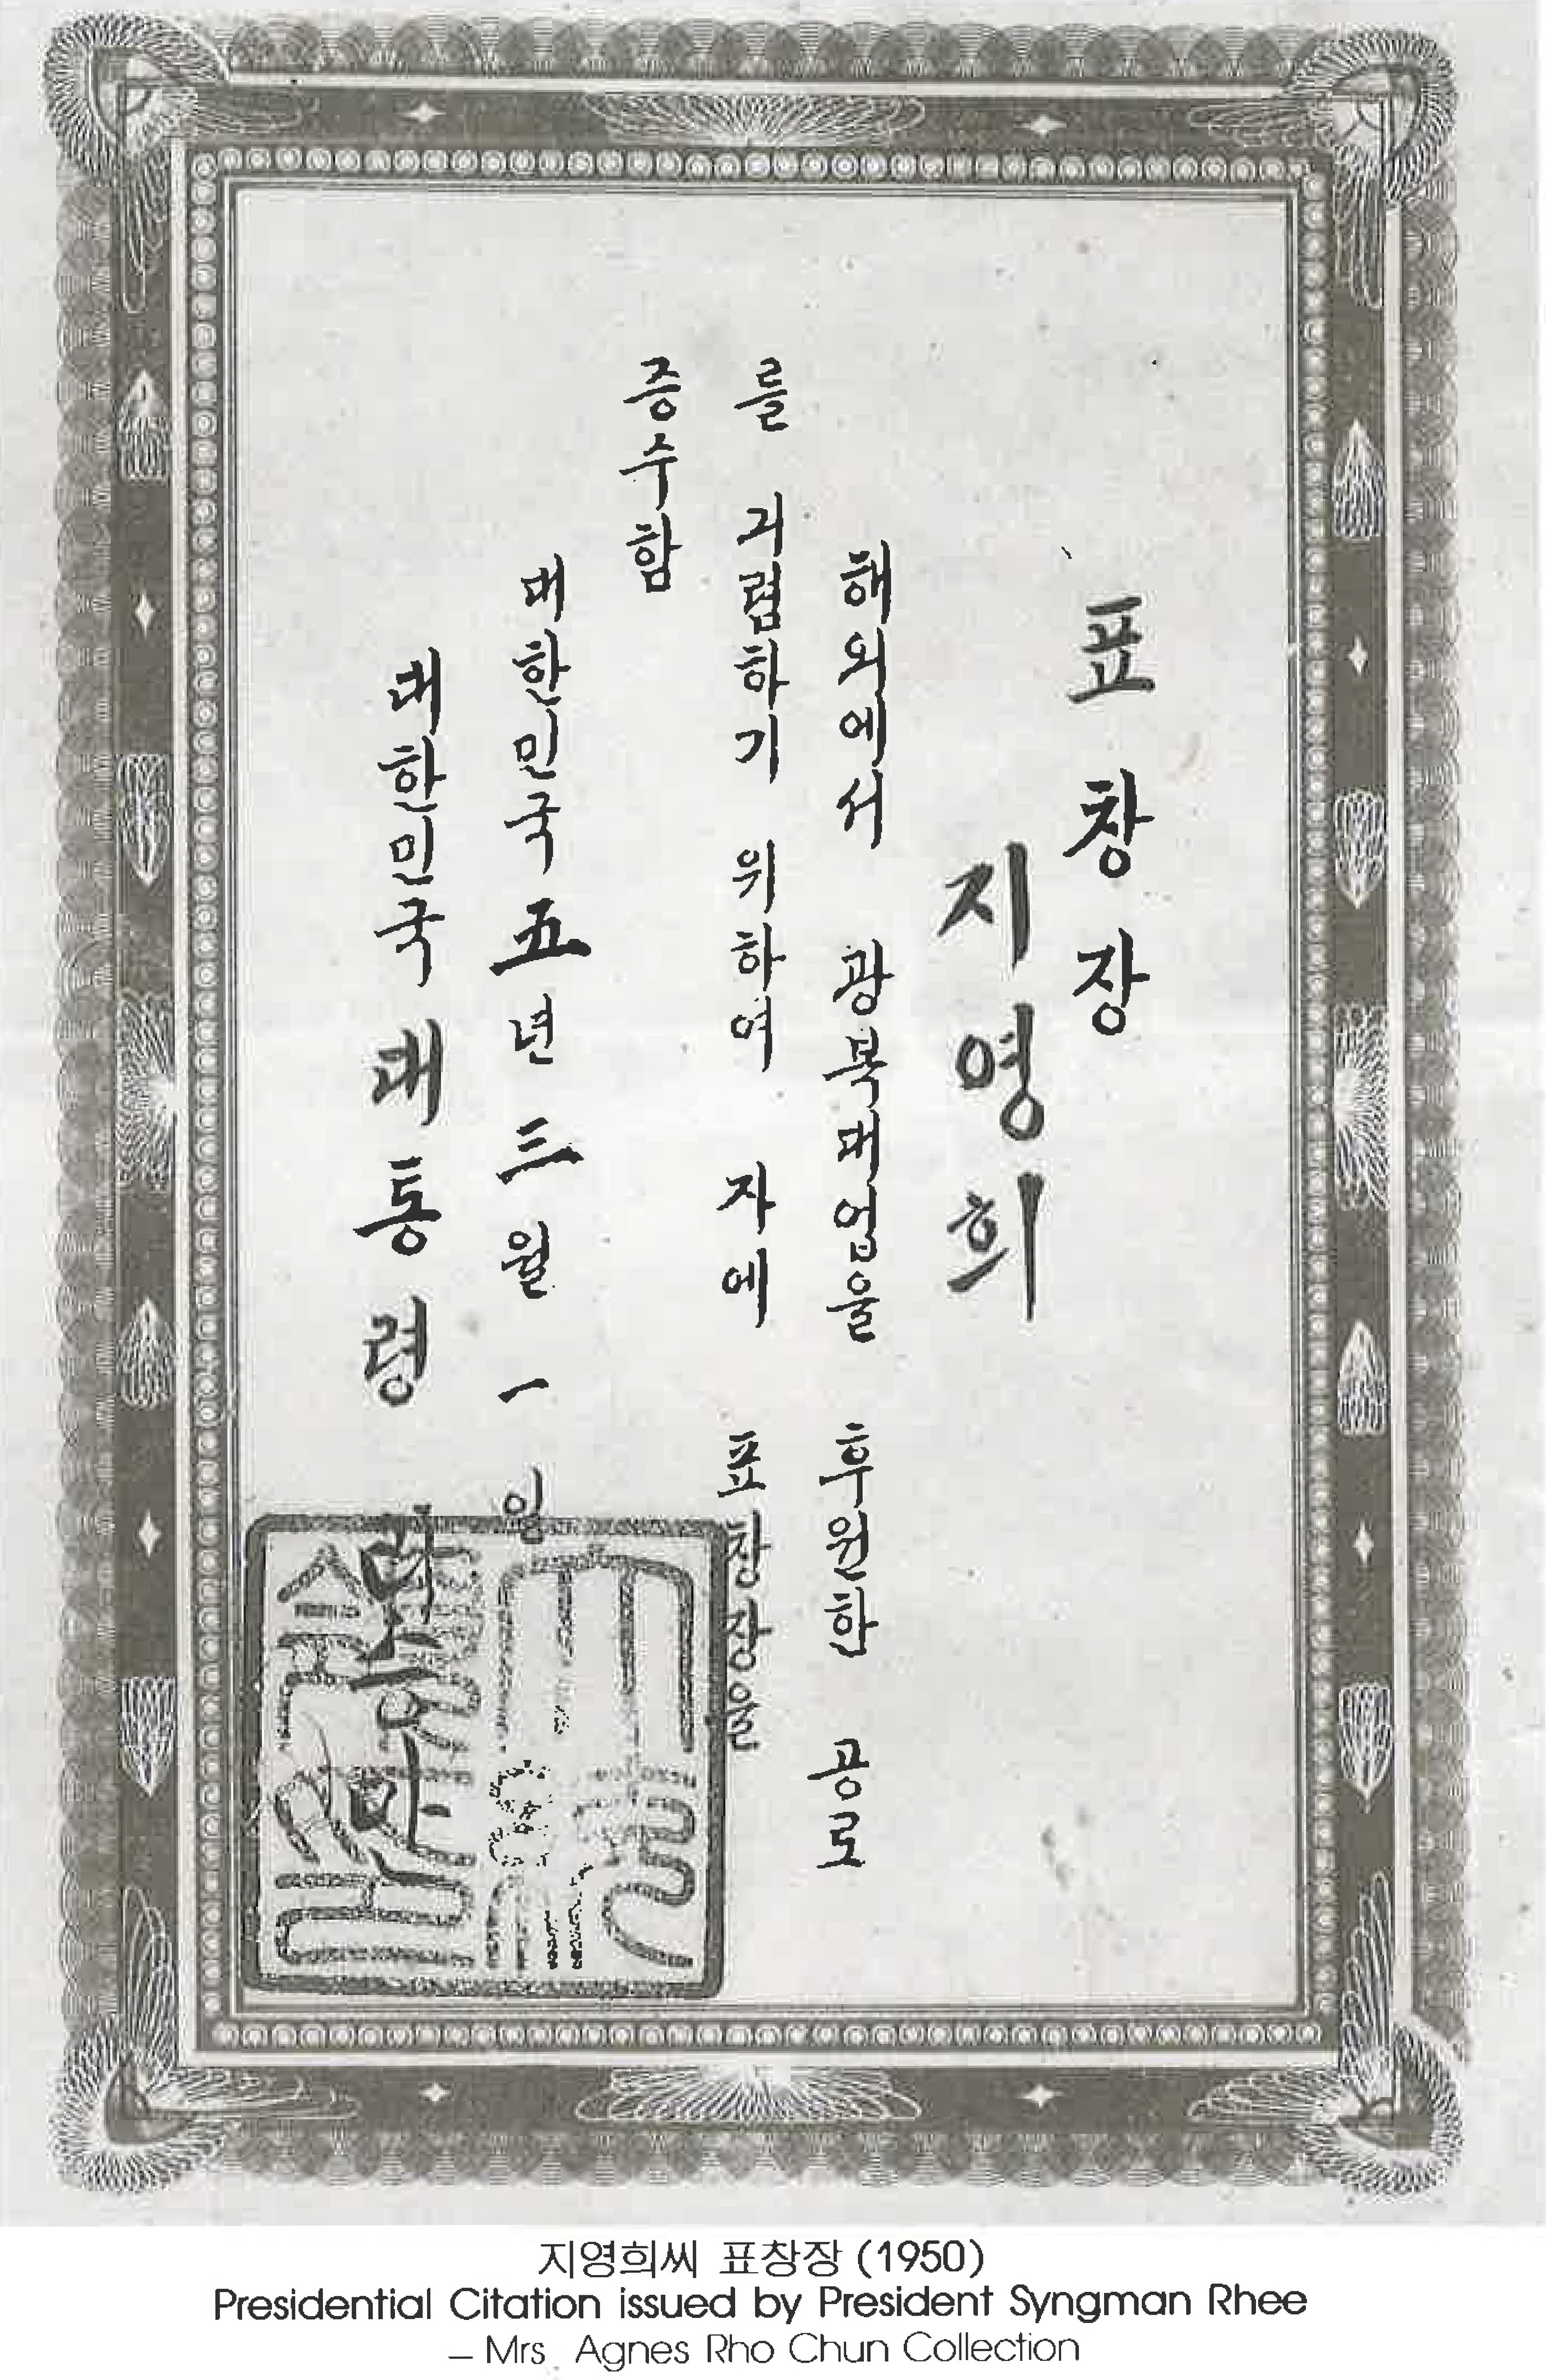 표창장
지영희
해외에서 광복의연을 후원한 공로
를 긔렴하기 위하여 자에 표창장을
증수함
대한민국 五년 三월 一일
대한민국 대통령
지영희씨 표창장 (1950)
Presidential Citation issued by President Syngman Rhee
— Mrs. Agnes Rho Chun Collection